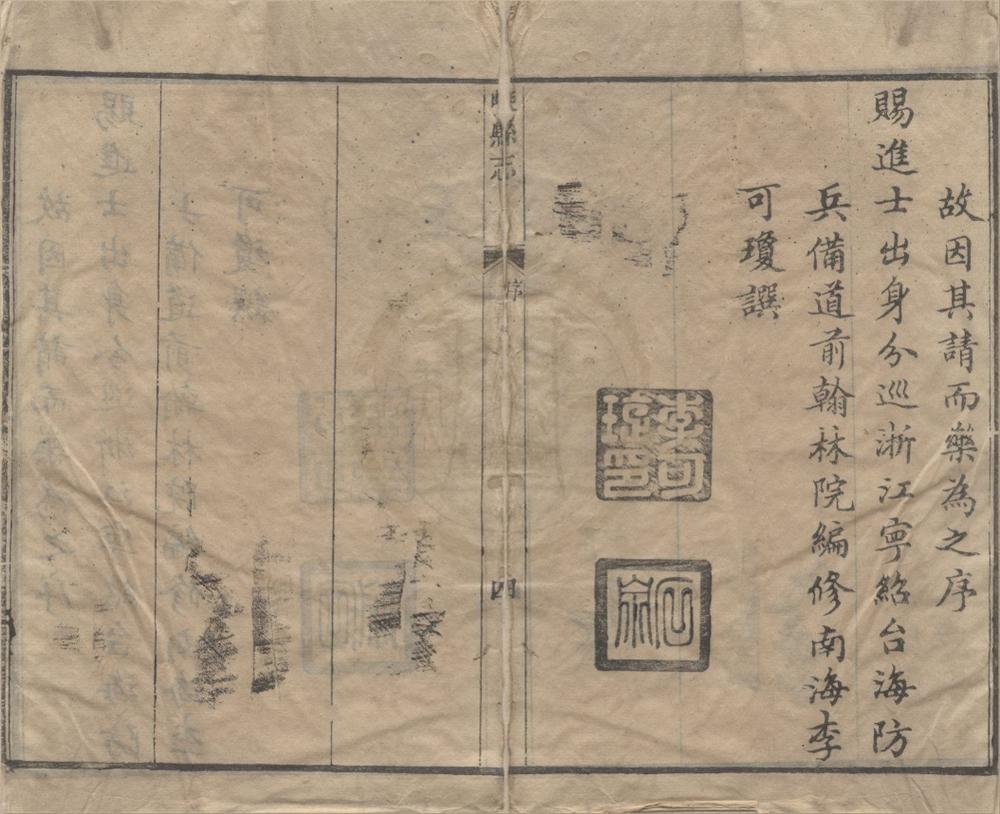 故因其請而樂為之序
賜進士出身分巡浙江寧紹台海防
兵備道前翰林院編修南海李
可瓊譔
李可瓊印
嵊縣志
序
四